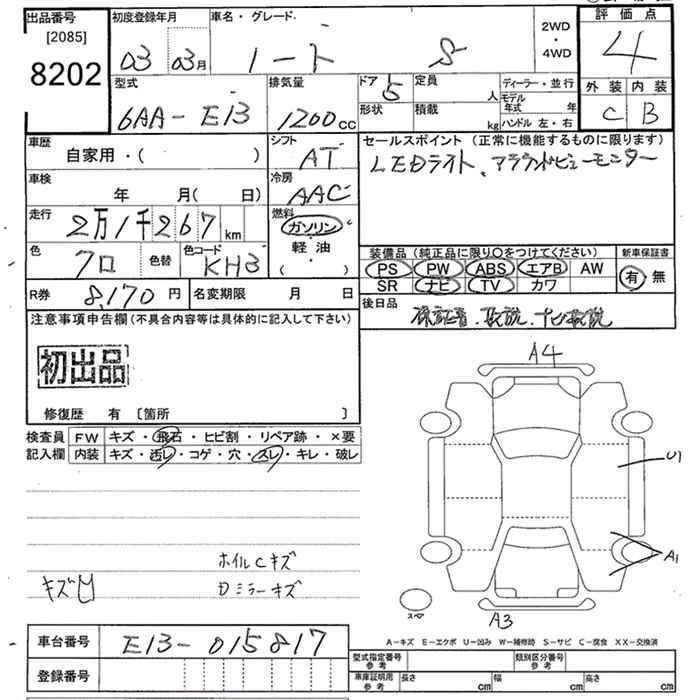 出品番号
[2085]
8202
初度登録年月
03 03月
車名・グレード
ノート S
2WD
・
4WD
評価点
4
外装 内装
C B
型式
6AA-E13
排気量
1200cc
ドア 5
形状
定員 人
積載 kg
ディーラー・並行
モデル年式 年
ハンドル 左・右
車歴
自家用・( )
シフト
AT
車検
年 月( 日)
冷房
AAC
走行
2万1千267km
燃料
ガソリン
軽・油
・( )
色
クロ
色替
色コード
KH3
R券 8,170円
名変期限 月 日
セールスポイント(正常に機能するものに限ります)
LEDライト、アラウンドビューモニター
装備品(純正品に限り○をつけてください)
PS PW ABS エアB AW
SR ナビ TV カワ
新車保証書
有・無
後日品
保証書、取説、ナビ取説
注意事項申告欄(不具合内容等は具体的に記入して下さい)
初出品
修復歴 有 [箇所 ]
検査員記入欄
FW キズ・飛石・ヒビ割・リペア跡・×要
内装 キズ・汚レ・コゲ・穴・スレ・キレ・破レ
ホイルCキズ
キズ
Dミラーキズ
A4
U1
A1
スペア
A3
車台番号
E13-015817
登録番号
A-キズ E-エクボ U-凹み W-補修跡 S-サビ C-腐食 XX-交換済
型式指定番号 参考
類別区分番号 参考
車庫証明用 参考
長さ cm
幅 cm
高さ cm